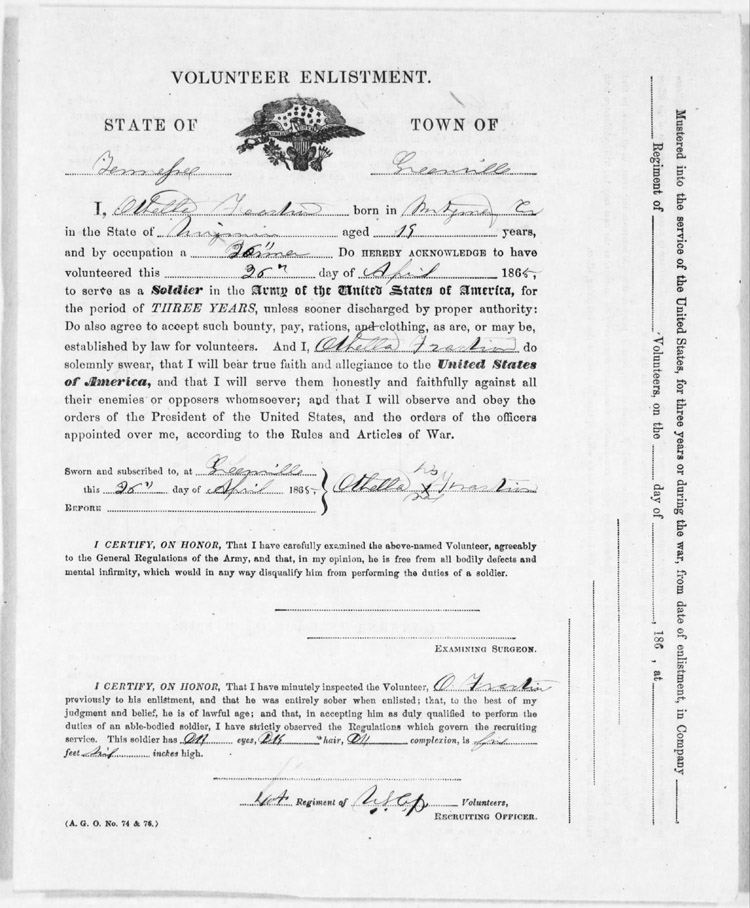 VOLUNTEER ENLISTMENT.
STATE OF TOWN OF
Tennessee Greenville
I, Othella Fraction born in Montgomery Co
in the State of Virginia aged 19 years,
and by occupation a Farmer Do HEREBY ACKNOWLEDGE to have
volunteered this 26" day of April 1865,
to serve as a Soldier in the Army of the United States of America, for
the period of THREE YEARS, unless sooner discharged by proper authority:
Do also agree to accept such bounty, pay, rations, and clothing, as are, or may be,
established by law for volunteers. And I, Othella Fraction do
solemnly swear, that I will bear true faith and allegiance to the United States
of America, and that I will serve them honestly and faithfully against all
their enemies or opposers whomsoever; and that I will observe and obey the
orders of the President of the United States, and the orders of the officers
appointed over me, according to the Rules and Articles of War.
Sworn and subscribed to, at Greenville
this 26" day of April 1865.
BEFORE
Othella his X Fraction
I CERTIFY, ON HONOR, That I have carefully examined the above-named Volunteer, agreeably
to the General Regulations of the Army, and that, in my opinion, he is free from all bodily defects and
mental infirmity, which would in any way disqualify him from performing the duties of a soldier.
EXAMINING SURGEON.
I CERTIFY, ON HONOR, That I have minutely inspected the Volunteer, O. Fraction
previously to his enlistment, and that he was entirely sober when enlisted; that, to the best of my
judgment and belief, he is of lawful age; and that, in accepting him as duly qualified to perform the
duties of an able-bodied soldier, I have strictly observed the Regulations which govern the recruiting
service. This soldier has eyes, hair, complexion, is five
feet inches high.
1st Regiment of Volunteers,
RECRUITING OFFICER.
(A. G. O. No. 74 & 76.)
Mustered into the service of the United States, for three years or during the war, from date of enlistment, in Company
Regiment of Volunteers, on the day of , 186 , at